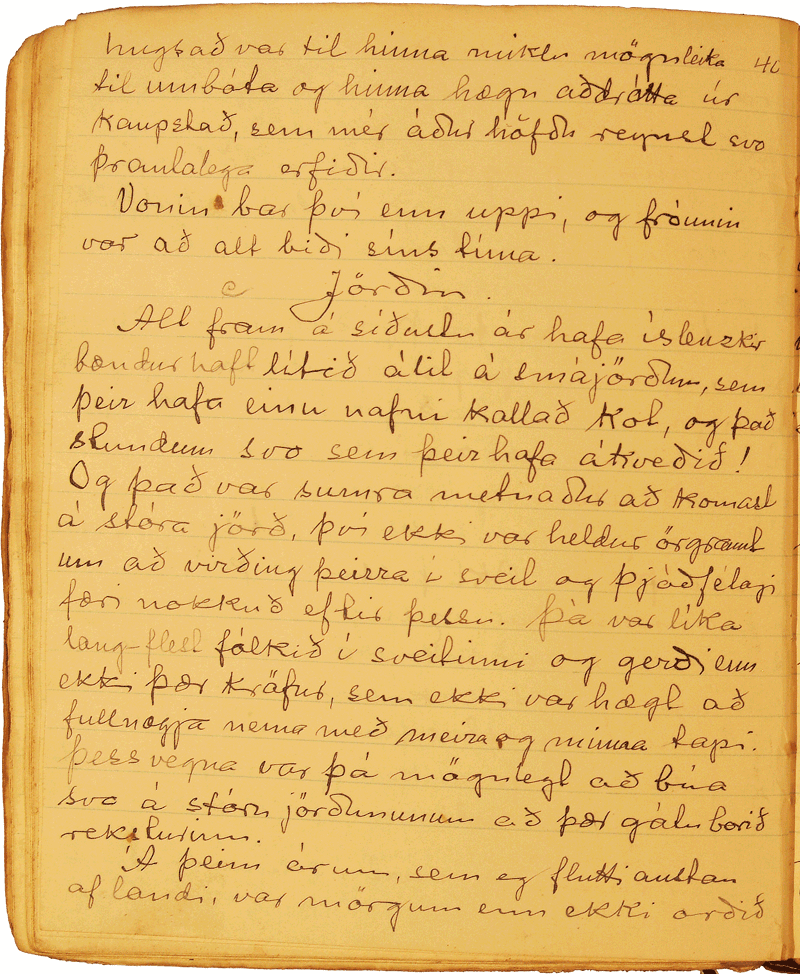 hugsað var til hinna miklu möguleika 40
til umbóta og hinna hægu aðdrátta úr
kaupstað, sem mér áður höfðu reynst svo
þrautalega erfiðir.
Vonin bar því enn uppi, og fróunin
var að alt biði síns tíma.
c Jörðin.
Alt fram á síðustu ár hafa íslenzkir
bændur haft lítið álit á smájörðum, sem
þeir hafa einu nafni kallað kot, og það
stundum svo sem þeir hafa átkveðið!
Og það var sumra metnaður að komast
á stóra jörð, því ekki var heldur örgrannt
um að virðing þeirra í sveit og þjóðfélagi
færi nokkuð eftir þessu. Þá var líka
lang-flest fólkið í sveitinni og gerði enn
ekki þær kröfur, sem ekki var hægt að
fullnægja nema með meira og minna tapi.
Þess vegna var þá mögulegt að búa
svo á stóru jörðununum að þær gátu borið
reksturinn.
Á þeim árum, sem eg flutti austan
af landi, var mörgum enn ekki orðið